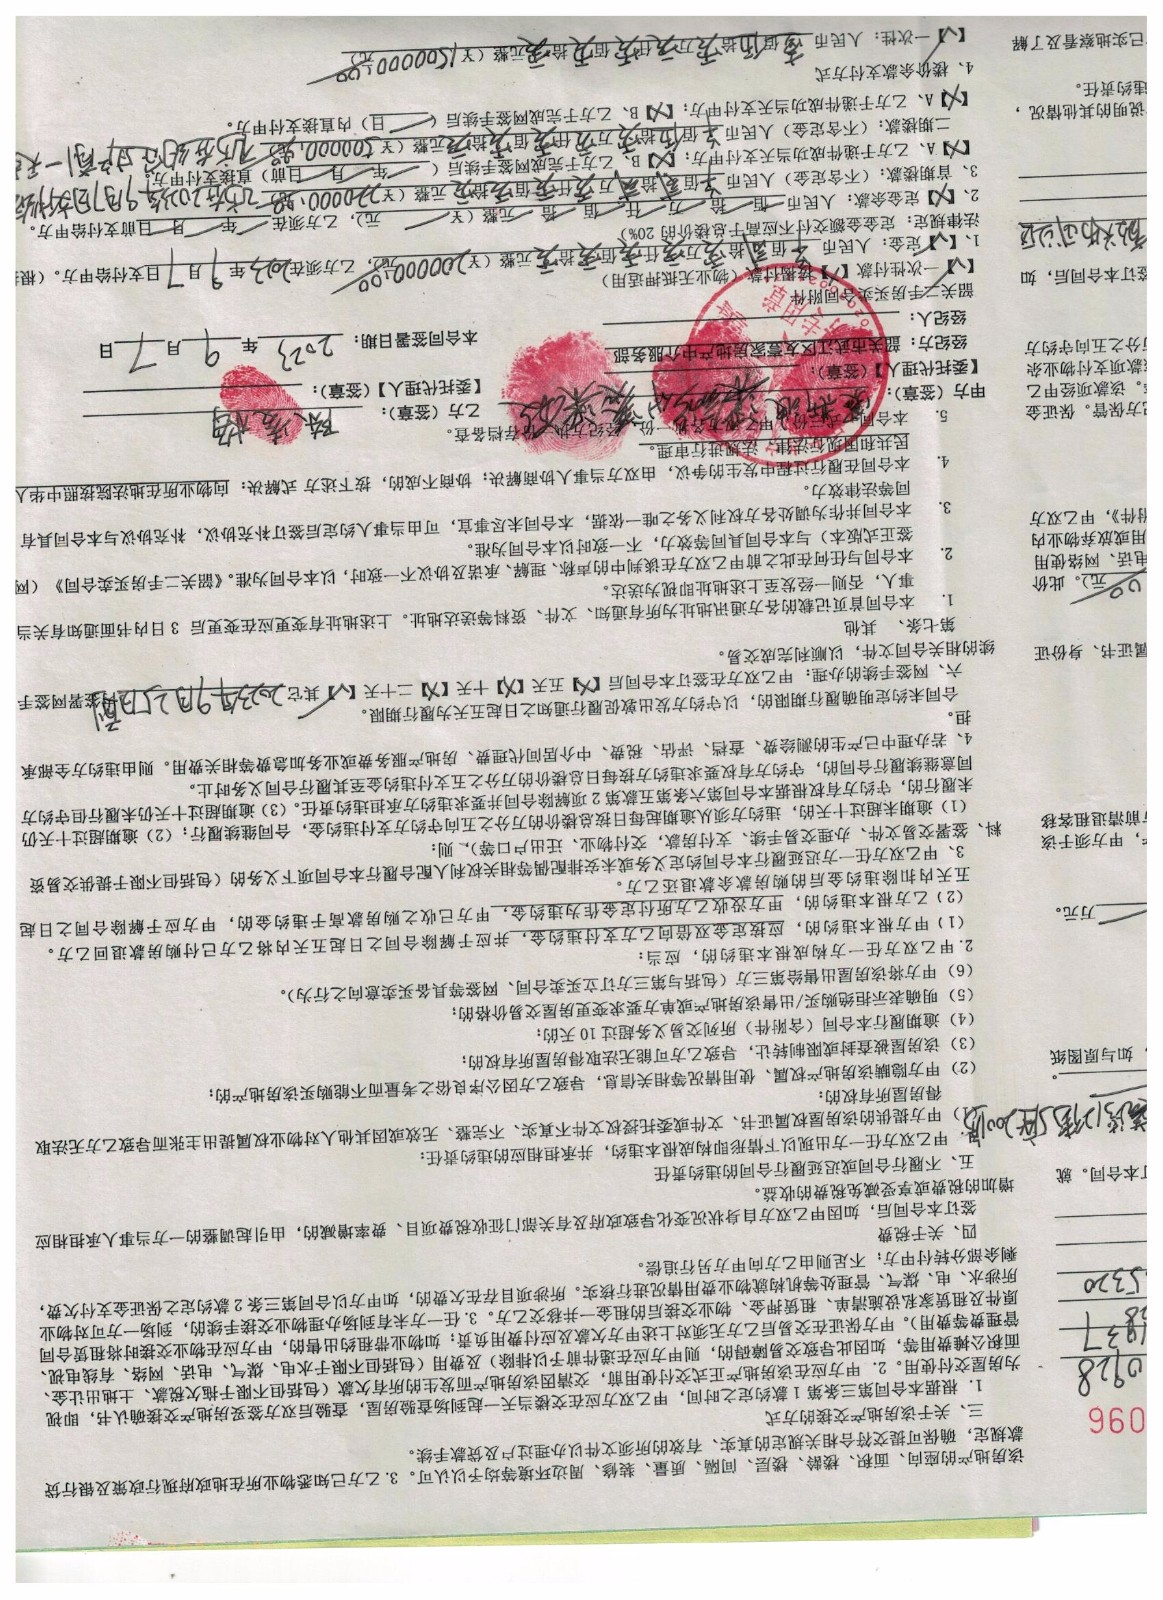 该房地产的座向、面积、楼龄、楼层、间隔、质量、装修、周边环境等均予以认可。3.乙方已知悉物业所在地政府现行政策及银行贷
款规定，确保可提交符合相关规定的真实、有效的所须文件以办理过户及贷款手续。
三、关于该房地产交接的方式
1. 根据本合同第三条第 1 款约定之时间，甲乙双方应在交楼当天一起到场查验房屋，查验后双方签妥房地产交接确认书，即视
为房屋交付使用。2. 甲方应在该房地产正式交付使用前，交清因该房地产而发生的所有欠款（包括但不限于拖欠税款、土地出让金、
面积公摊费用等，如因此导致交易障碍的，则甲方应在递件前予以排除）及费用（包括但不限于水电、煤气、电话、网络、有线电视、
管理费等费用）。甲方保证在交易后乙方无须对上述甲方欠款及应付费用负责；如物业带租约出售的，甲方应在物业交接时将租赁合同
原件及租赁家私设施清单、租赁押金、物业交接后的租金一并移交乙方。3.任一方未有到场办理物业交接手续的，到场一方可对物业
所涉水、电、煤气、管理处等机构就物业费用情况进行核实。所涉项目存在欠费的，如甲方以合同第三条 2 款约定之保证金支付欠费，
剩余部分转付甲方；不足则由乙方向甲方另行追偿。
四、关于税费
签订本合同后，如因甲乙双方自身状况变化导致政府及有关部门征收税费项目、费率增减的，由引起调整的一方当事人承担相应
增加的税费或享受减免税费的收益。
五、不履行合同或迟延履行合同的违约责任
甲乙双方任一方出现以下情形即构成根本违约，并承担相应的违约责任：
甲方提供的该房屋权属证书、文件或委托授权文件不真实、不完整、无效或因其他人对物业权属提出主张而导致乙方无法取
得房屋所有权的；
（2）甲方隐瞒该房地产权属、使用情况等相关信息，导致乙方因公序良俗之考量而不能购买该房地产的；
（3）该房屋被查封或限制转让，导致乙方可能无法取得房屋所有权的；
（4）逾期履行本合同（含附件）所列交易义务超过 10 天的；
（5）明确表示拒绝购买/出售该房地产或单方要求变更房屋交易价格的；
（6）甲方将该房屋出售给第三方（包括与第三方订立买卖合同、网签等具备买卖意向之行为）。
2.甲乙双方任一方构成根本违约的，应当：
（1）甲方根本违约的，应按定金双倍向乙方支付违约金，并应于解除合同之日起五天内将乙方已付购房款退回乙方。
（2）乙方根本违约的，甲方没收乙方所付定金作为违约金，甲方已收之购房款高于违约金的，甲方应于解除合同之日起
五天内扣除违约金后的购房款余款退还乙方。
3、甲乙双方任一方迟延履行本合同约定义务或未安排配偶等相关权利人配合履行本合同项下义务的（包括但不限于提供交易资
料、签署交易文件、办理交易手续、支付房款，交付物业、迁出户口等），则：
（1）逾期未超过十天的，违约方须从逾期起每日按总楼价的万分之五向守约方支付违约金，合同继续履行；（2）逾期超过十天仍
未履行的，守约方有权根据本合同第六条第五款第 2 项解除合同并要求违约方承担违约责任。（3）逾期超过十天仍未履行但守约方
同意继续履行合同的，守约方有权要求违约方按每日总楼价的万分之五支付违约金至其履行合同义务时止。
4、若办理中已产生的测绘费、查档、评估、税费、中介居间代理费、房地产服务费或业务加急费等相关费用。则由违约方全部承
担。
合同未约定明确履行期限的，以守约方发出敦促履行通知之日起五天为履行期限。
六、网签手续的办理：甲乙双方在签订本合同后【X】五天【X】十天【X】二十天【√】其它2023年9月25日前签署网签手
续的相关合同文件，以顺利完成交易。
第七条、其他
1. 本合同首页记载的各方通讯地址为所有通知、文件、资料等送达地址。上述地址有变更应在变更后 3 日内书面通知有关当
事人，否则一经发至上述地址即视为送达。
2. 本合同与任何在此之前甲乙双方在谈判中的声称、理解、承诺及协议不一致时，以本合同为准。《韶关二手房买卖合同》（网
签正式版本）与本合同具同等效力，不一致时以本合同为准。
3. 本合同并作为调处各方权利义务之唯一依据，本合同未尽事宜，可由当事人约定后签订补充协议，补充协议与本合同具有
同等法律效力。
4. 本合同在履行过程中发生的争议，由双方当事人协商解决；协商不成的，按下述方式解决：向物业所在地法院按照中华人
民共和国现行法律、法规进行审理。
5. 本合同一式三份，甲乙双方各执一份，经纪方执一份存档备查。
甲方（签章）： 乙方（签章）：
【委托代理人】（签章）： 【委托代理人】（签章）：
经纪方：韶关市武江区友嘉家房地产中介服务部
经纪人： 本合同签署日期：2023 年 9 月 7 日
韶关二手房买卖合同附件
【√】一次性付款【 】按揭付款（物业无抵押适用）
1、【√】定金：人民币 零佰贰拾零万零仟零佰零拾零元整（￥200000.00元），乙方须在2023年9月7日支付给甲方。（根据
法律规定：定金金额交付不应高于总楼价的 20%）
2、【X】定金余款：人民币 佰 拾 万 仟 佰 拾 元整（￥ 元），乙方须在 年 月 日前支付给甲方。
3、首期楼款：（不含定金）人民币
【X】A、乙方于递件成功当天支付甲方；【X】B、乙方于完成网签手续后（ 年 月 日前）直接支付甲方
二期楼款：（不含定金）人民币
【X】A、乙方于递件成功当天支付甲方；【X】B、乙方于完成网签手续后（ 日）内直接支付甲方。
4、楼价余款支付方式
【√】一次性：人民币 壹佰伍拾零万零仟零佰零拾零元整（￥1500000.00元）
0960
5320
订本合同。就
，如与原图纸
万元。
，甲方须于该
前清退租客移
属证书、身份证
元）。此价
电话、网络使用
用或放弃物业内
件》，甲乙双方
乙方保管。保证金
。该款项经甲乙
款项支付物业杂
万分之五向守约方
签订本合同后，如
说明的其他情况，
违约责任。
已实地察看及了解